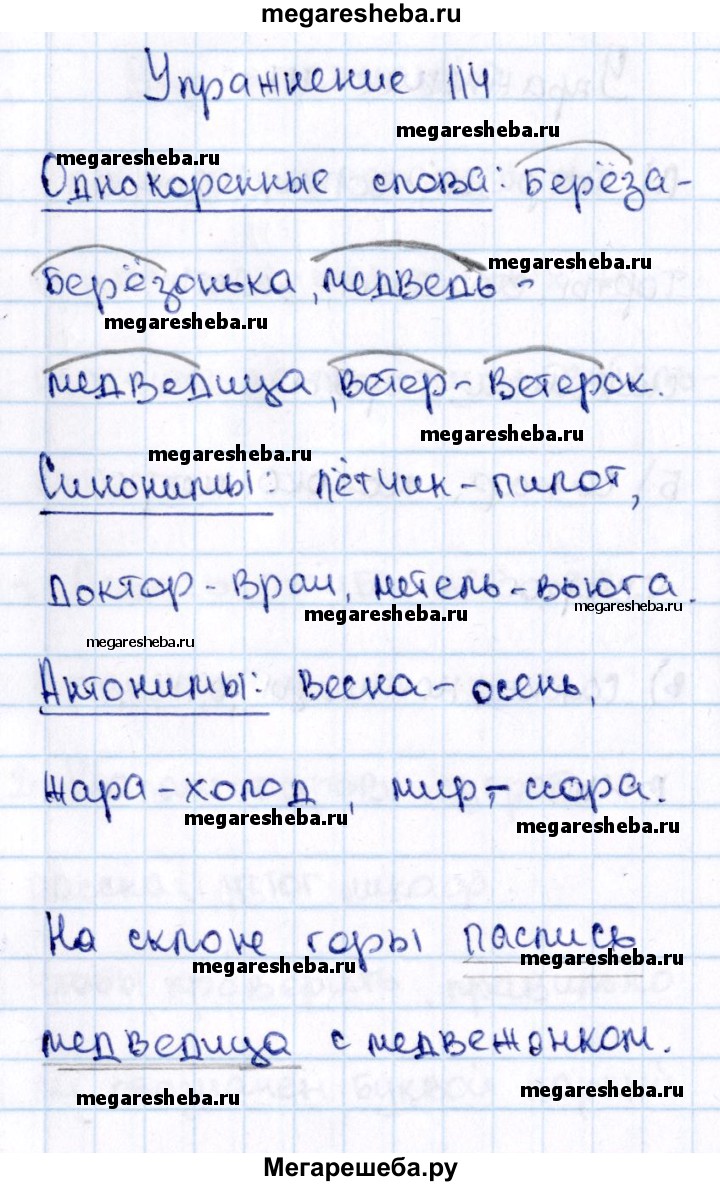 megaresheba.ru
Упражнение 114
megaresheba.ru
megaresheba.ru
Однокоренные слова: берёза-
megaresheba.ru
берёзонька, медведь-
megaresheba.ru
медведица, ветер-ветерок.
megaresheba.ru
megaresheba.ru
Синонимы: лётчик-пилот,
доктор-врач, метель-вьюга.
megaresheba.ru
megaresheba.ru
megaresheba.ru
Антонимы: весна-осень,
жара-холод, мир-
megaresheba.ru
megaresheba.ru
На склоне горы паслись
megaresheba.ru
megaresheba.ru
медведица с медвежонком.
megaresheba.ru
megaresheba.ru
Мегарешеба.ру